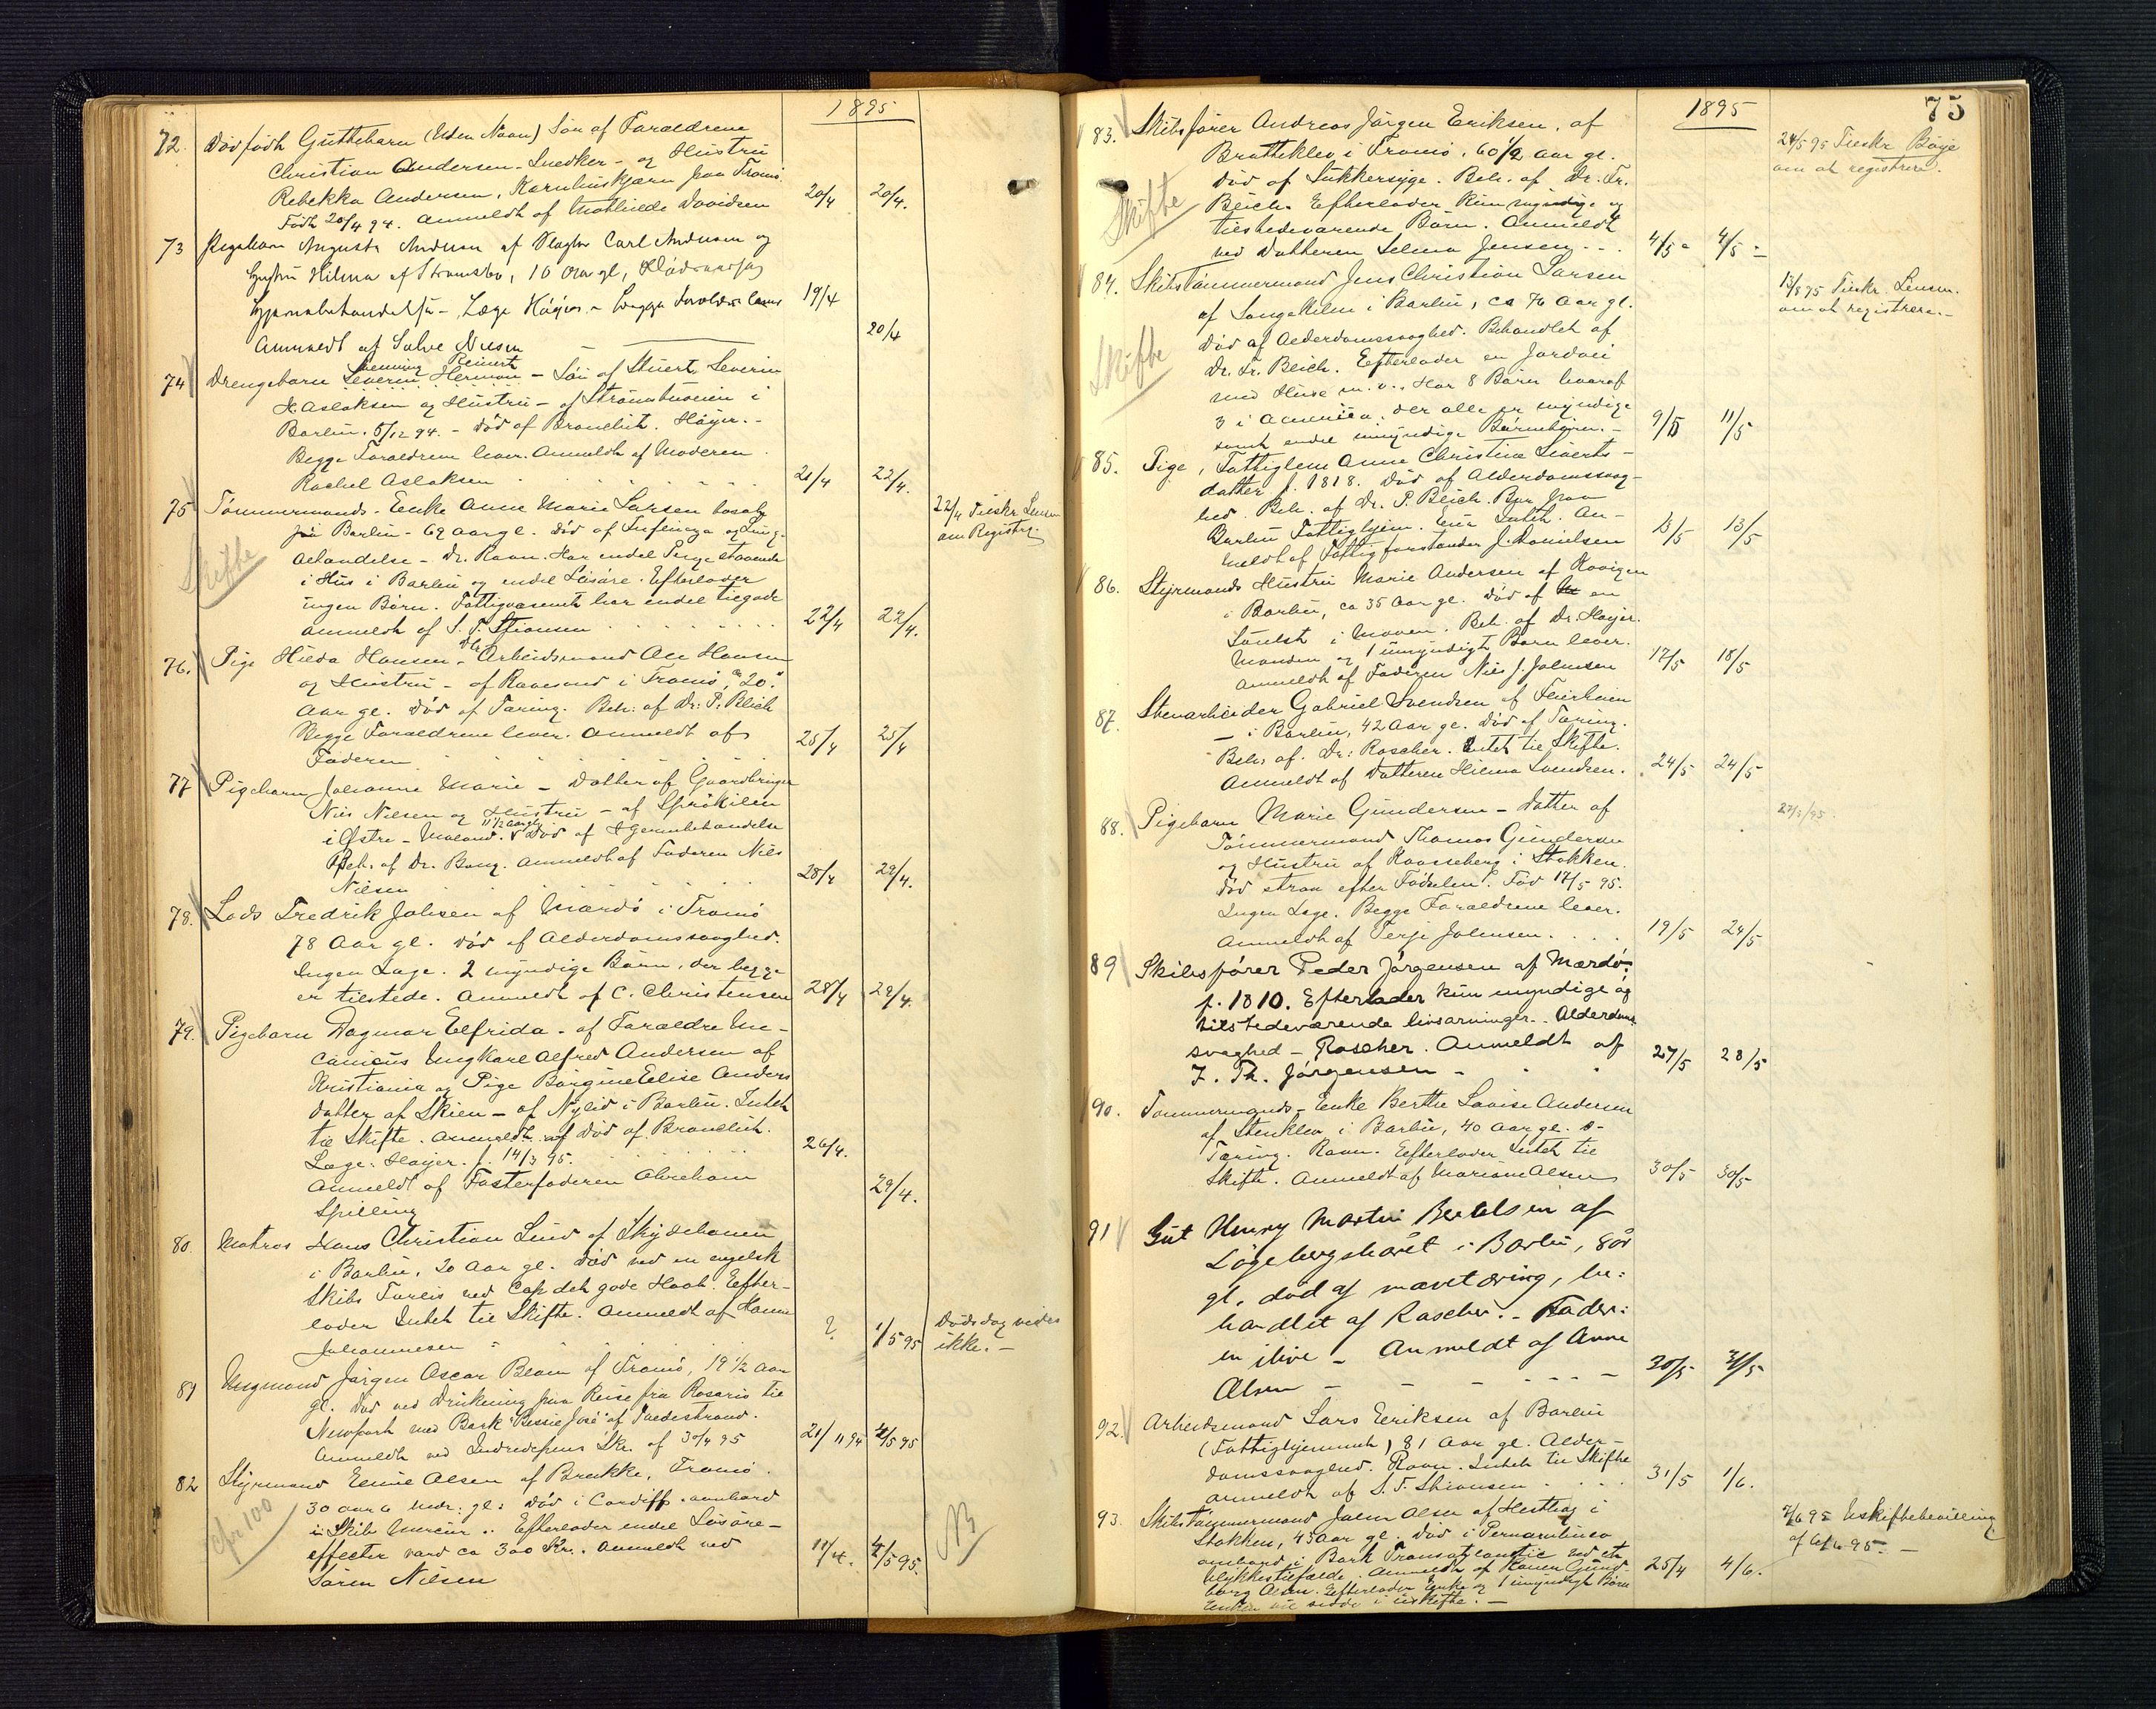 1895
72. Dødfødt Guttebarn (Uden Navn) Søn af Forældrene
Christian Andersen - Snedker - og Hustru
Rebekka Andersen, paa Tromø.
Født 20/4 94. Anmeldt af Mathilde Davidsen 20/4 20/4.
73 Pigebarn Augusta Andersen af Carl Andersen og
Hustru Hilma af Strømsbo, 10 Aar gl,
Hjernebetændelse - Læge Höyer - begge Forældre lever 19/4
Anmeldt af Salve Nilsen 20/4
Henning Reinert
74 Drengebarn Severin Herman - Søn af Stuert Severin
H. Aslaksen og Hustru - af Strømsbuneien i
Barbu. 5/12 94. - Død af Bronchit. Höyer. -
Begge Forældrene lever. Anmeldt af Moderen
Rachel Aslaksen 21/4 22/4.
75 Tømmermands-Enke Anne Marie Larsen bosat
paa Barbu - 69 Aar gl. Død af Influenza og Lunge-
betændelse - Dr. Ravn. Har endel Penge staaende
i Hus i Barbu og endel Løsøre. Efterlader
ingen Børn. Fattigvæsenet har endel tilgode
Anmeldt af S. T. Stiansen 22/4 22/4.
Skifte
22/4 Tilskr. Lensm
om Registrg.
76. Pige Hilda Hansen - Dtr Arbeidsmand Ole Hansen
og Hustru - af Ravesund i Tromø, ca 20
Aar gl. Død af Tæring. Beh: af Dr: P. Blich
Begge Forældrene lever. Anmeldt af
Faderen 25/4 25/4
77 Pigebarn Johanne Marie - Datter af Gaardbruger
Nils Nilsen og Hustru - af
i Østre-Moland. 11 1/2 Aar gl. Død af Hjernebetændelse
Beh. af Dr. Bang. Anmeldt af Faderen Nils
Nilsen 28/4 28/4.
78. Lods Fredrik Johsen af Mærdø i Tromø
78 Aar gl. Død af Alderdomssvaghed.
Ingen Læge. 2 myndige Børn, der begge
er tilstede. Anmeldt af C. Christensen 28/4 28/4.
79. Pigebarn Dagmar Elfrida - af Forældre Me-
canicus Ungkarl Alfred Andersen af
Kristiania og Pige Börgine Elise Anders
datter af Skien - af Nylid i Barbu. Intet
til Skifte. Anmeldt af Død af Bronchit.
Læge: Höyer. f. 14/3 95. 26/4.
Anmeldt af Fosterfaderen Abraham
Spilling 29/4.
80. Matros Hans Christian Lund af Skydebanen
i Barbu, 20 Aar gl. Død ved en engelsk
Skibs Forlis ved Cap det gode Haab. Efter-
lader Intet til Skifte. Anmeldt af Hanna
Johannesen ? 1/5 95
Dødsdag vides
ikke. -
81 Ungmand Jørgen Oscar Beam af Tromø, 19 1/2 Aar
gl. Død ved Drukning paa Reise fra Rosario til
Newport med Bark "Bessie José" af Tvedestrand.
Anmeldt ved Indredepens Skr. af 30/4 95 21/11 94 2/5 95
82 Styrmand Emil Olsen af Brekke, Tromø.
30 Aar 6 Mdr. gl. Død i Cardiff ombord
i Skib Mercur. Efterlader endel Løsøre-
effecter værd ca 300 Kr. Anmeldt ved
Søren Nilsen 11/4. 4/5 95.
cfr 100
75
1895
83. Skibsfører Andreas Jørgen Eriksen, af
Bratteklev i Tromø, 60 1/2 Aar gl.
Død af Sukkersyge. Beh. af Dr. Fr.
Blich. Efterlader kun myndige og
tilstedeværende Børn. Anmeldt
ved Datteren Selma Jensen 4/5 4/5
Skifte
24/5 95 Tilskr Böye
om at registrere.
84. Skibstømmermand Jens Christian Larsen
af Songekilen i Barbu, ca 76 Aar gl.
Død af Alderdomssvaghed. Behandlet af
Dr. Fr. Blich. Efterlader en Jordvei
med Huse m. v. Har 8 Børn hvoraf
3 i Amerika, der alle er myndige
samt endel umyndige Børnebørn. - 9/5 11/5
Skifte
13/5 95 Tilskr. Lensm.
om at registrere. -
85. Pige, Fattiglem Anne Christine Siverts-
datter f. 1818. Død af Alderdomssvag-
hed. Beh. af Dr. P. Blich. Bor paa
Barbu Fattighjem. Eier Intet. An-
meldt af Fattigforstander J. Danielsen 13/5 13/5
86. Styrmands Hustru Marie Andersen af Kovigen
i Barbu, ca 35 Aar gl. Død af en
Svulst i Maven. Beh. af Dr. Höyer.
Manden og 1 umyndigt Barn lever.
Anmeldt af Faderen Nils J. Johnsen 17/5 18/5
87. Stenarbeider Gabriel Svendsen af
i Barbu, 42 Aar gl. Død af Tæring.
Beh. af. Dr: Roscher. Intet til Skifte.
Anmeldt af Datteren Hilma Svendsen. 24/5 24/5
88. Pigebarn Marie Gundersen - Datter af
Tømmermand Thomas Gundersen
og Hustru af Kaasseberg i Stokken.
Død strax efter Fødselen. Fød 17/5 95.
Ingen Læge. Begge Forældrene lever.
Anmeldt af Terje Johnsen. 19/5 24/5
27/5/95.
89 Skibsfører Peder Jörgensen af Mærdö.
f. 1810. Efterlader kun myndige og
tilstedeværende livsarvinger. Alderdoms
svaghed - Roscher. Anmeldt af
J. Th. Jörgensen 27/5 28/5
90. Tømmermands-Enke Berthe Lovise Andersen
af Stenklev i Barbu, 40 Aar gl.
Tæring. Ravn. Efterlader Intet til
Skifte. Anmeldt af Mariane Olsen 30/5 30/5
91 Gut Henry Martin Bertelsen af
Lögebergskaret i Barbu, 8 år
gl. død af mavetæring, be:
handlet af Roscher. - Forældr:
en ilive - Anmeldt af Anne
Olsen 30/5 31/5
92. Arbeidsmand Lars Eriksen af Barbu
(Fattighjemmet) 81 Aar gl. Alder-
domssvaghed. Ravn. Intet til Skifte
Anmeldt af S. T. Stiansen 31/5 1/6.
93. Skibstømmermand Johan Olsen af Hesthag i
Stokken, 45 Aar gl. Død i Pernambuco
ombord i Bark Transatlantic ved et
Ulykkestilfælde. Anmeldt af Karen Gund-
borg Olsen. Efterlader Enke og 1 umyndigt Barn
Enken vil sidde i uskifte. - 25/4 4/6.
7/6 95 Uskiftebevilling
af 6/6 95. -